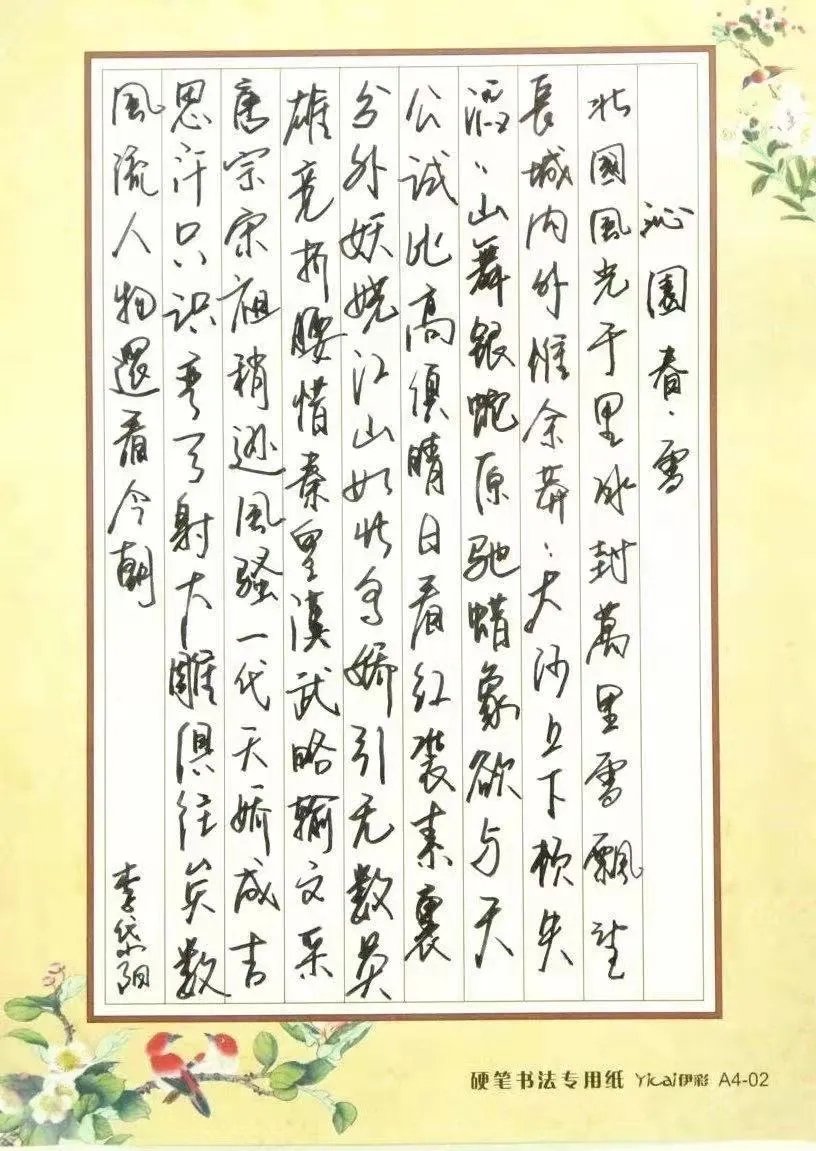 沁園春·雪
北國風光千里冰封萬里雪飄望
長城内外惟余莽ミ大河上下頓失
滔ミ山舞銀蛇原馳蜡象欲与天
公試比高須晴日看红裝素裹
分外妖娆江山如此多嬌引无數英
雄竞折腰惜秦皇漢武略輸文采
唐宗宋祖稍逊風骚一代天嬌成吉
思汗只识弯弓射大雕俱往矣數
風流人物還看今朝
李
硬笔书法专用纸 Yicai伊彩 A4-02